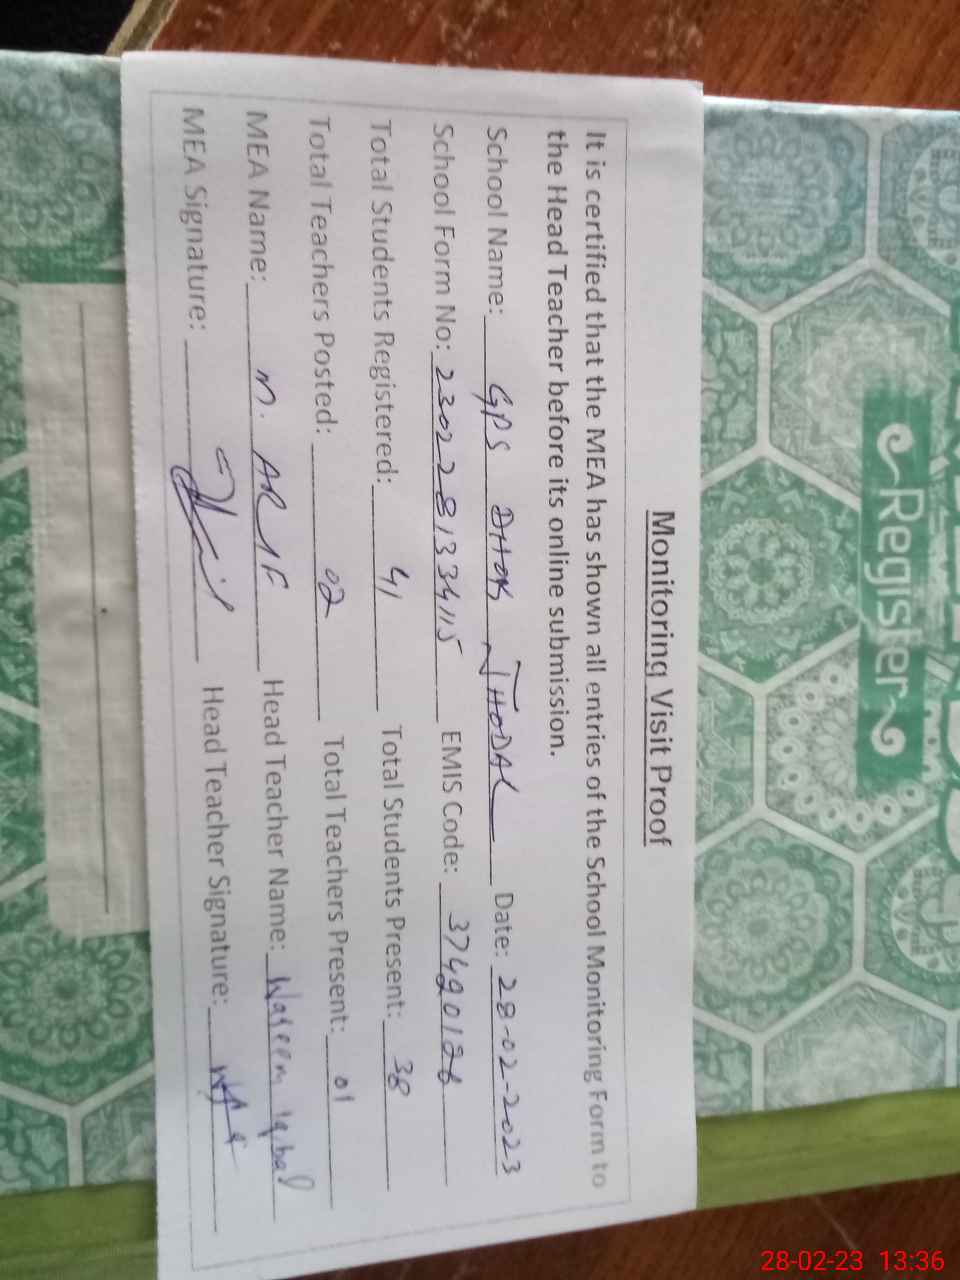 Monitoring Visit Proof
It is certified that the MEA has shown all entries of the School Monitoring Form to
the Head Teacher before its online submission.
School Name: GPS DHOK JHODAL Date: 28-02-2023
School Form No: 2302281334115 EMIS Code: 37420126
Total Students Registered: 41 Total Students Present: 38
Total Teachers Posted: 02 Total Teachers Present: 01
MEA Name: M. ARIF Head Teacher Name: Waseem Iqbal
MEA Signature: Head Teacher Signature:
Register
28-02-23 13:36